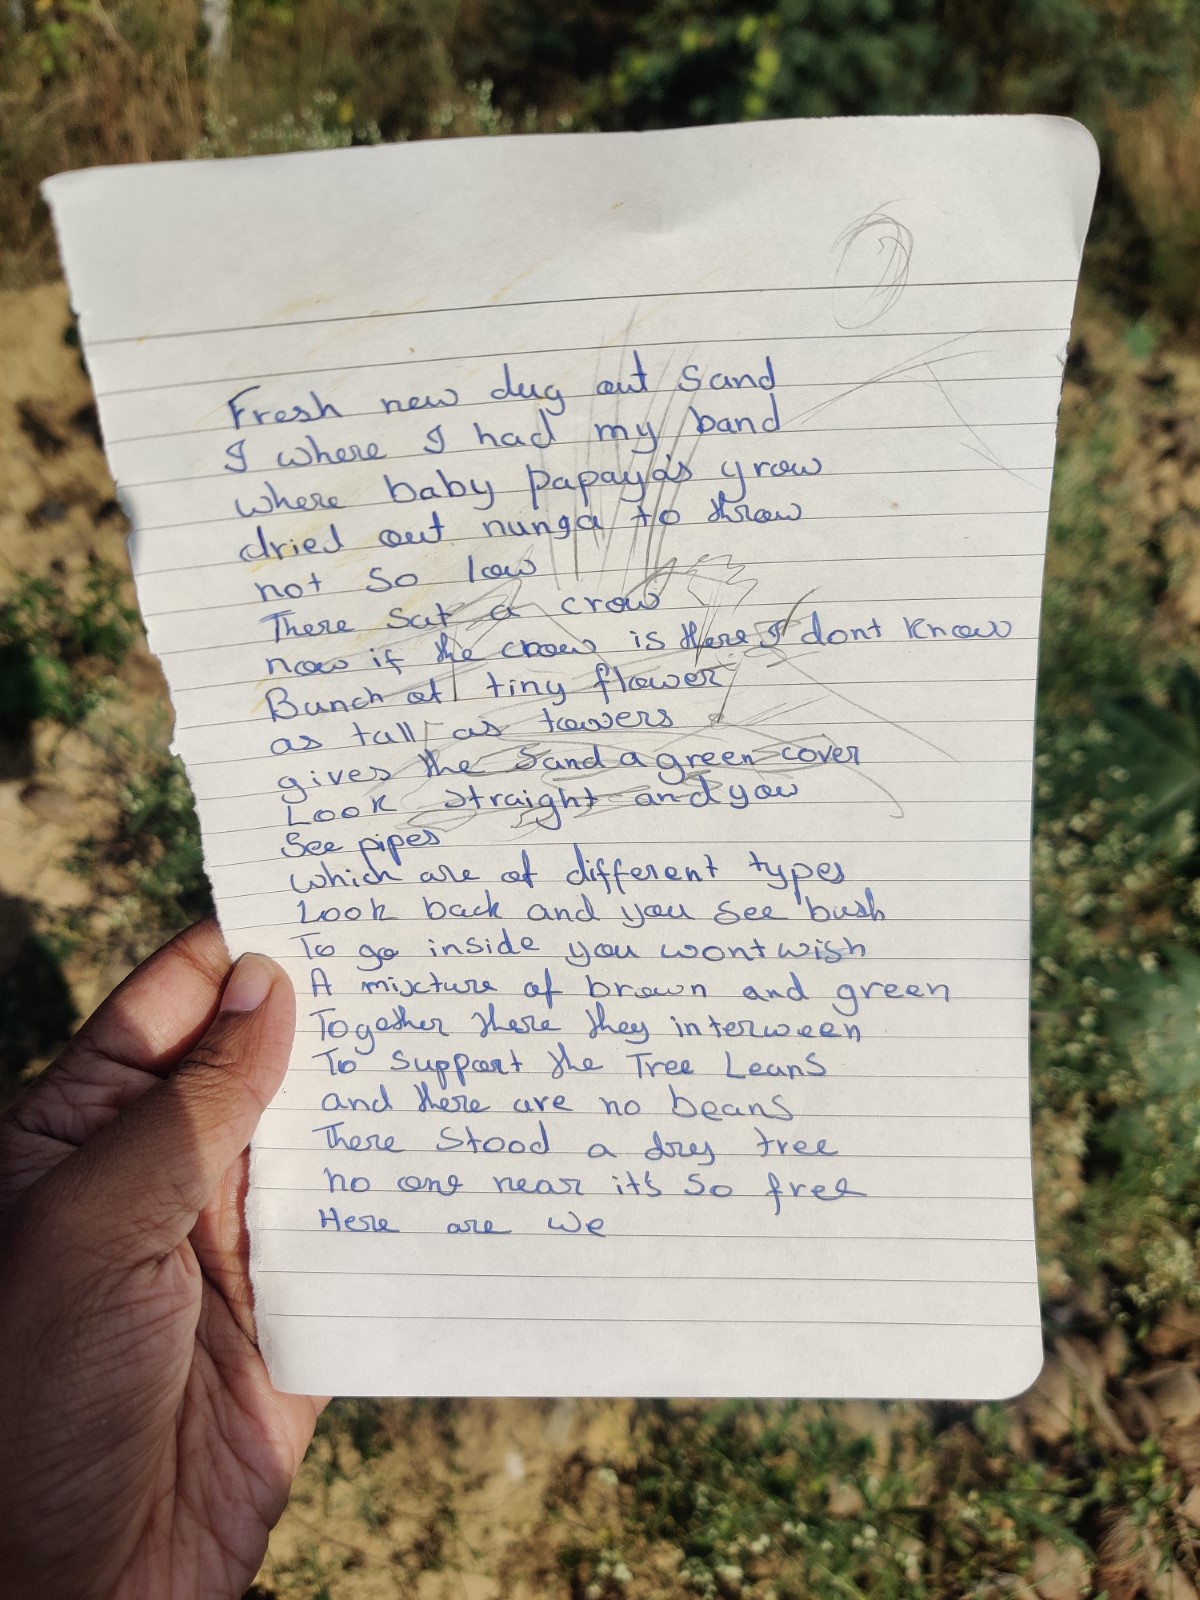 Fresh new dug out Sand
I where I had my band
where baby papaya's grow
dried out nunga to throw
not so low
There Sat a crow
now if the crow is there I dont know
Bunch of tiny flower
as tall as towers
gives the Sand a green cover
Look straight and you
See pipes
which are of different types
Look back and you see bush
To go inside you wont wish
A mixture of brown and green
Together there they interween
To Support the Tree Leans
and there are no beans
There Stood a dry tree
no one near it's so free
Here are we